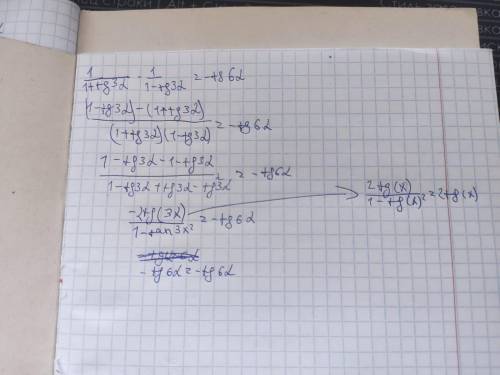 1/(1+tg3α) - 1/(1-tg3α) = -tg6α
((1-tg3α)-(1+tg3α))/((1+tg3α)(1-tg3α)) = -tg6α
(1-tg3α-1-tg3α)/(1-tg3α+tg3α-tg3α²) = -tg6α
-2tg(3α)/(1-tan3x²) = -tg6α
2tg(x)/(1-tg(x)²) = 2tg(x)
-tg6α = -tg6α